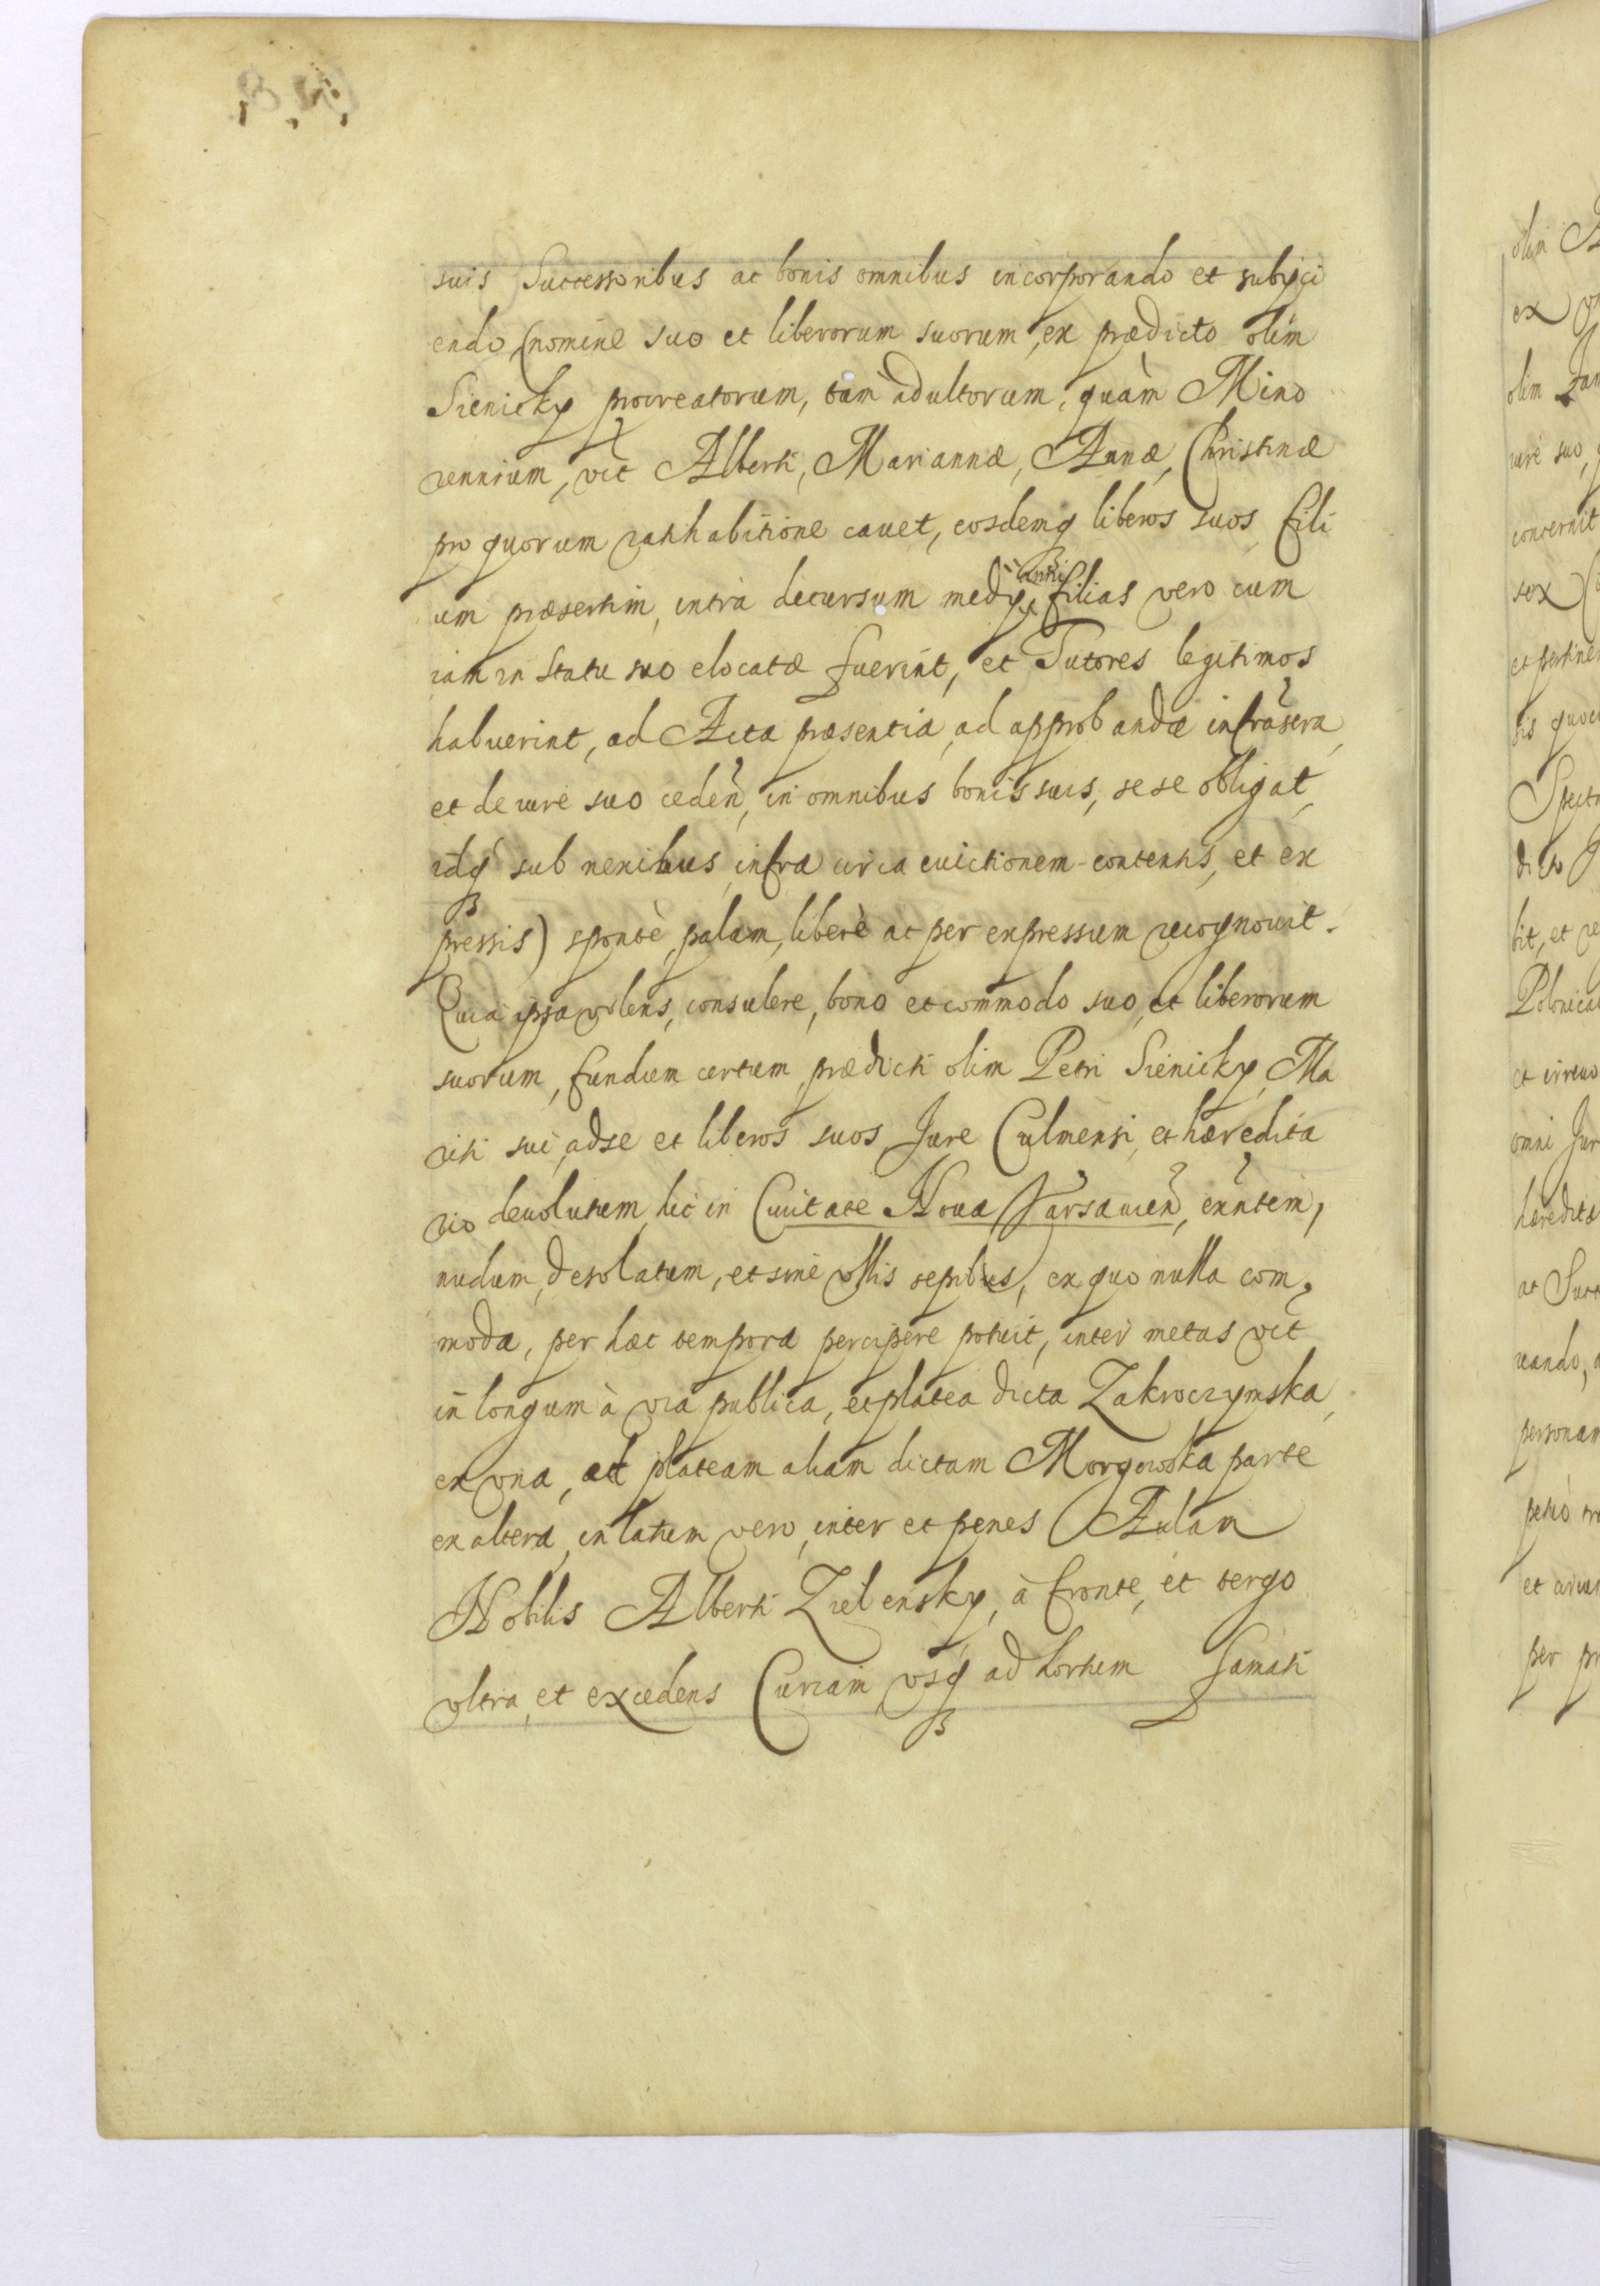 suis Successoribus ac bonis omnibus incorporando et subijci
endo (nomine suo et liberorum suorum, ex prædicto olim
Sienicky procreatorum, tam adultorum, quàm Mino
rennium, vīt Alberti, Mariannæ, Annæ, Christinæ
pro quorum rathabitione cauet, eosdemq liberos suos, fili
um præsertim, intrà decursum medij anni filias vero cum
iam in Statu suo elocatæ fuerint, et Tutores legitimos
habuerint, ad Acta præsentia, ad approbanda infrasera,
et de iure suo ceden̄, in omnibus bonis suis, sese obligat,
idq sub nexibus, infra circa euictionem contentis, et ex
pressis) spontè, palam, liberè ac per expressum recognouit.
Quia ipsa volens, consulere, bono et commodo suo, et liberorum
suorum, fundum certum prædicti olim Petri Sienicky, Ma
riti sui, ad se et liberos suos Jure Culmensi, et hæredita
rio deuolutum, hic in Ciuitate Noua Varsauien̄, exn̄tem,
nudum, desolatum, et sine vllis sepibus, ex quo nulla com
moda, per hæc tempora percipere potuit, inter metas vīt
in longum à via publica, et platea dicta Zakroczymska,
ex vna, ad plateam aliam dictam Morgowska parte
ex altera, in latum vero, inter et penes Aulam
Nobilis Alberti Zielensky, à fronte, et tergo
vltra, et excedens Curiam, vsq ad hortum famati
olim
ex
olim
iure suo,
concernit
sex
et pertinen
bis quoc
Spect
bit, et re
Polonica
et irreuo
omni Jur
hæredita
ac Succ
reando,
personam
et
per pr